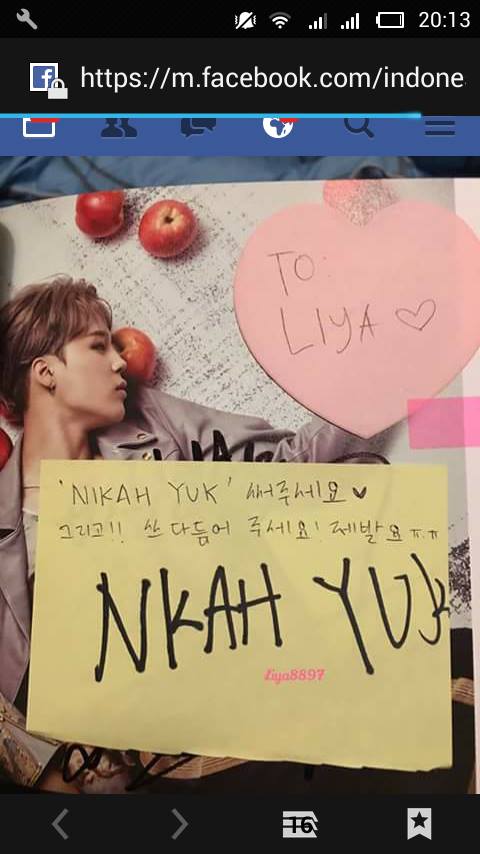 20:13
https://m.facebook.com/indone
TO:
LIYA ♡
'NIKAH YUK' 써주세요 ♥
그리고!! 쓰다듬어 주세요! 제발요 ㅠ.ㅠ
NKAH YUK
Liya8897
16